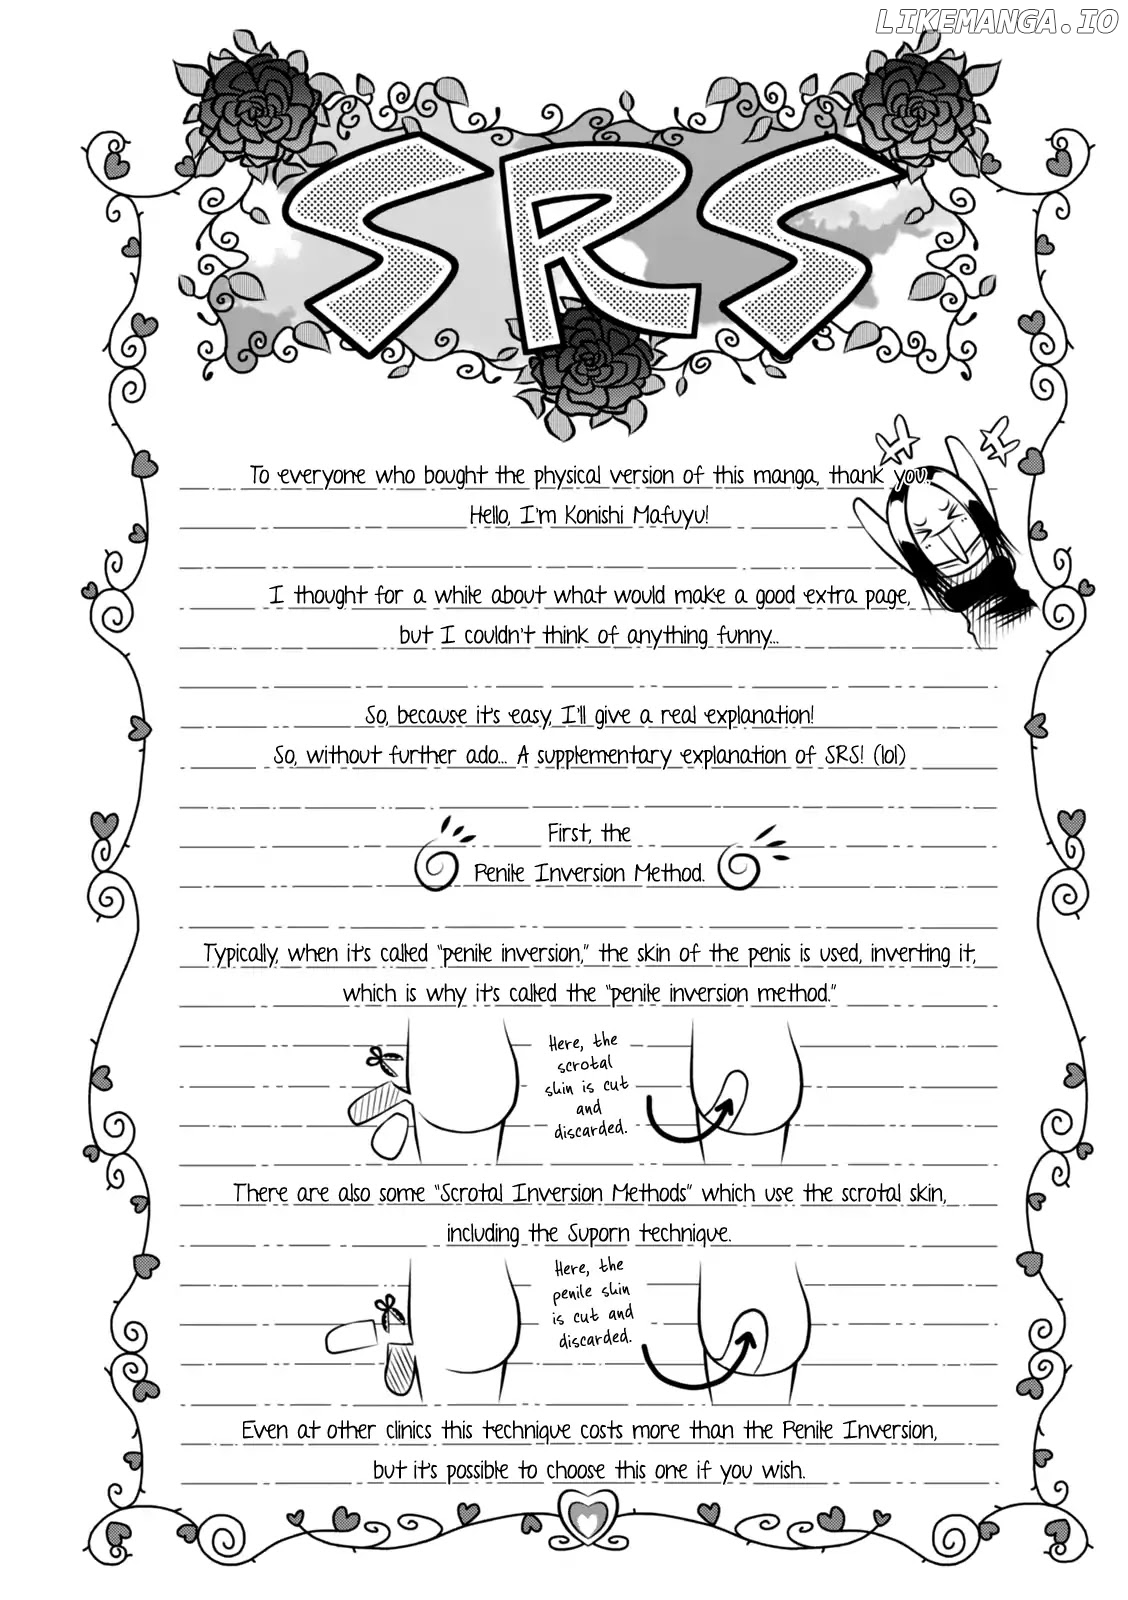 LIKEMANGA.IO
SRS
To everyone who bought the physical version of this manga, thank you.
Hello, I'm Konishi Mafuyu!
I thought for a while about what would make a good extra page,
but I couldn't think of anything funny...
So, because it's easy, I'll give a real explanation!
So, without further ado... A supplementary explanation of SRS! (lol)
First, the
Penile Inversion Method.
Typically, when it's called "penile inversion," the skin of the penis is used, inverting it,
which is why it's called the "penile inversion method."
Here, the
scrotal
skin is cut
and
discarded.
There are also some "Scrotal Inversion Methods" which use the scrotal skin,
including the Suporn technique.
Here, the
penile skin
is cut and
discarded.
Even at other clinics this technique costs more than the Penile Inversion,
but it's possible to choose this one if you wish.